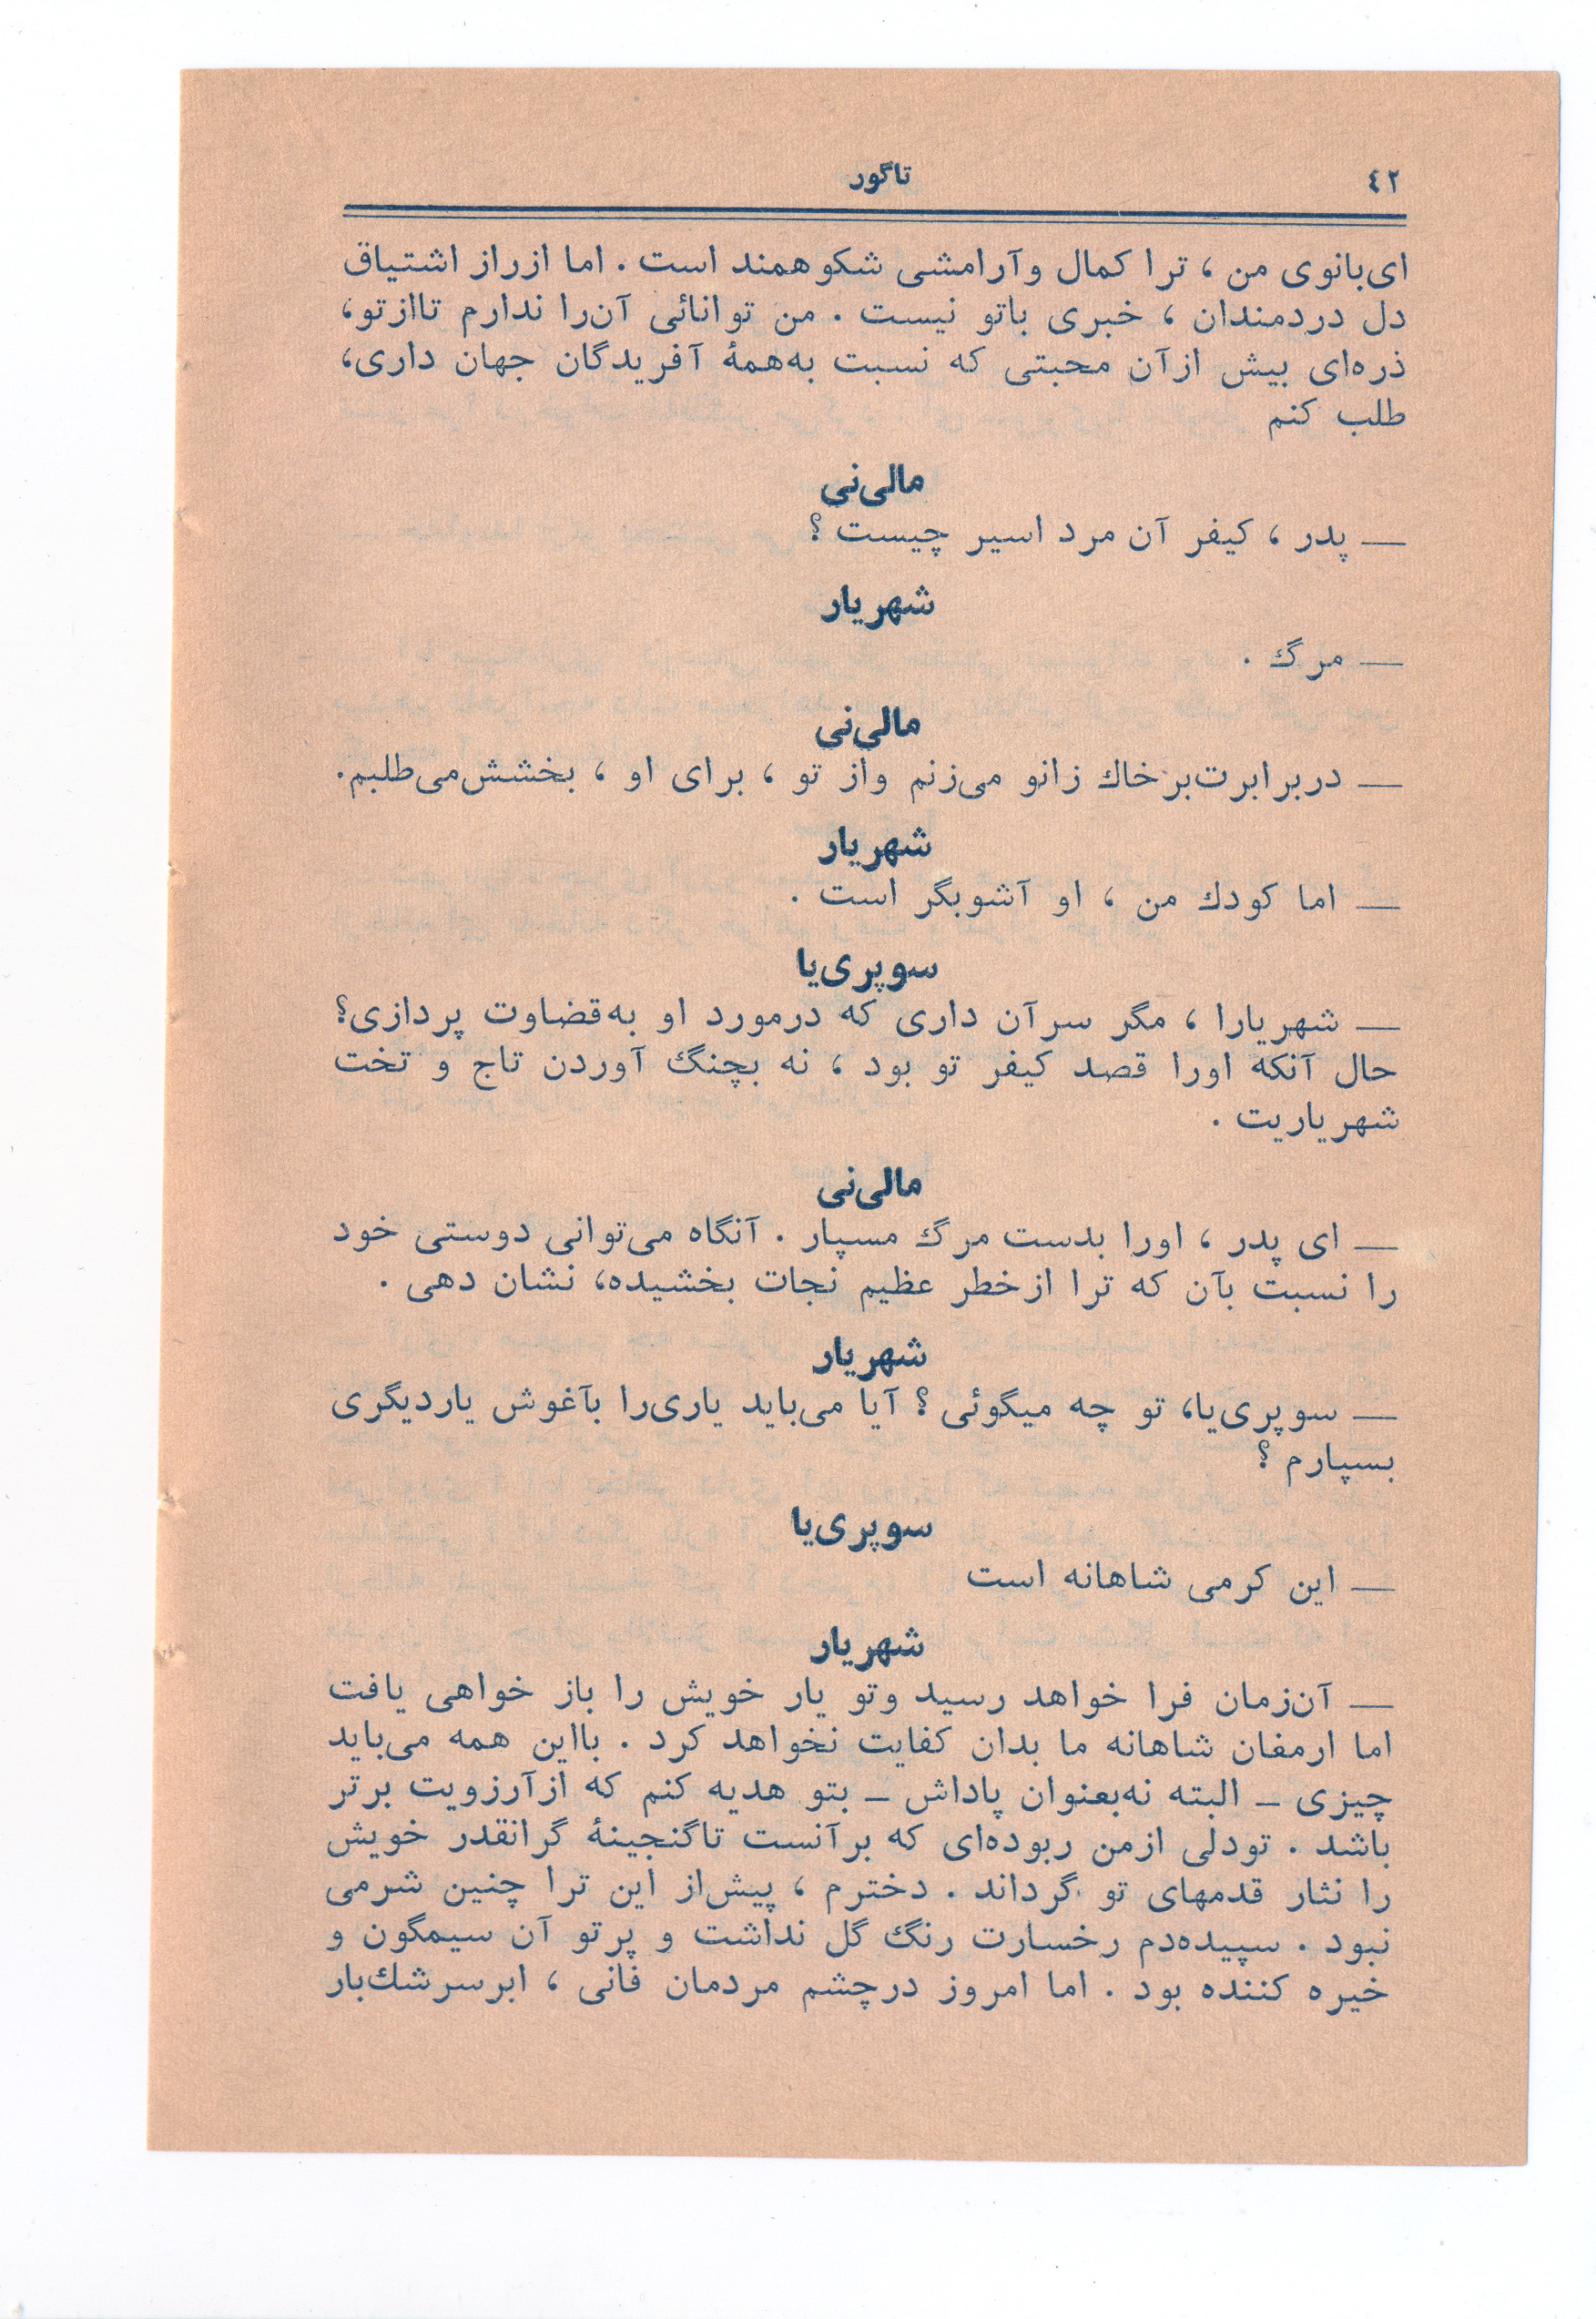 ٤٢
تاگور
ای‌بانوی من ، ترا کمال وآرامشی شکوهمند است . اما ازراز اشتیاق
دل دردمندان ، خبری باتو نیست . من توانائی آن‌را ندارم تاازتو،
ذره‌ای بیش ازآن محبتی که نسبت به‌همهٔ آفریدگان جهان داری،
طلب کنم
مالی‌نی
— پدر ، کیفر آن مرد اسیر چیست ؟
شهریار
— مرگ .
مالی‌نی
— دربرابرت‌برخاك زانو می‌زنم واز تو ، برای او ، بخشش‌می‌طلبم.
شهریار
— اما کودك من ، او آشوبگر است .
سوپری‌یا
— شهریارا ، مگر سرآن داری که درمورد او به‌قضاوت پردازی؟
حال آنکه اورا قصد کیفر تو بود ، نه بچنگ آوردن تاج و تخت
شهریاریت .
مالی‌نی
— ای پدر ، اورا بدست مرگ مسپار . آنگاه می‌توانی دوستی خود
را نسبت بآن که ترا ازخطر عظیم نجات بخشیده، نشان دهی .
شهریار
— سوپری‌یا، تو چه میگوئی ؟ آیا می‌باید یاری‌را بآغوش یاردیگری
بسپارم ؟
سوپری‌یا
— این کرمی شاهانه است
شهریار
— آن‌زمان فرا خواهد رسید وتو یار خویش را باز خواهی یافت
اما ارمغان شاهانه ما بدان کفایت نخواهد کرد . بااین همه می‌باید
چیزی – البته نه‌بعنوان پاداش – بتو هدیه کنم که ازآرزویت برتر
باشد . تودلی ازمن ربوده‌ای که برآنست تاگنجینهٔ گرانقدر خویش
را نثار قدمهای تو گرداند . دخترم ، پیش‌از این ترا چنین شرمی
نبود . سپیده‌دم رخسارت رنگ گل نداشت و پرتو آن سیمگون و
خیره کننده بود . اما امروز درچشم مردمان فانی ، ابرسرشك‌بار